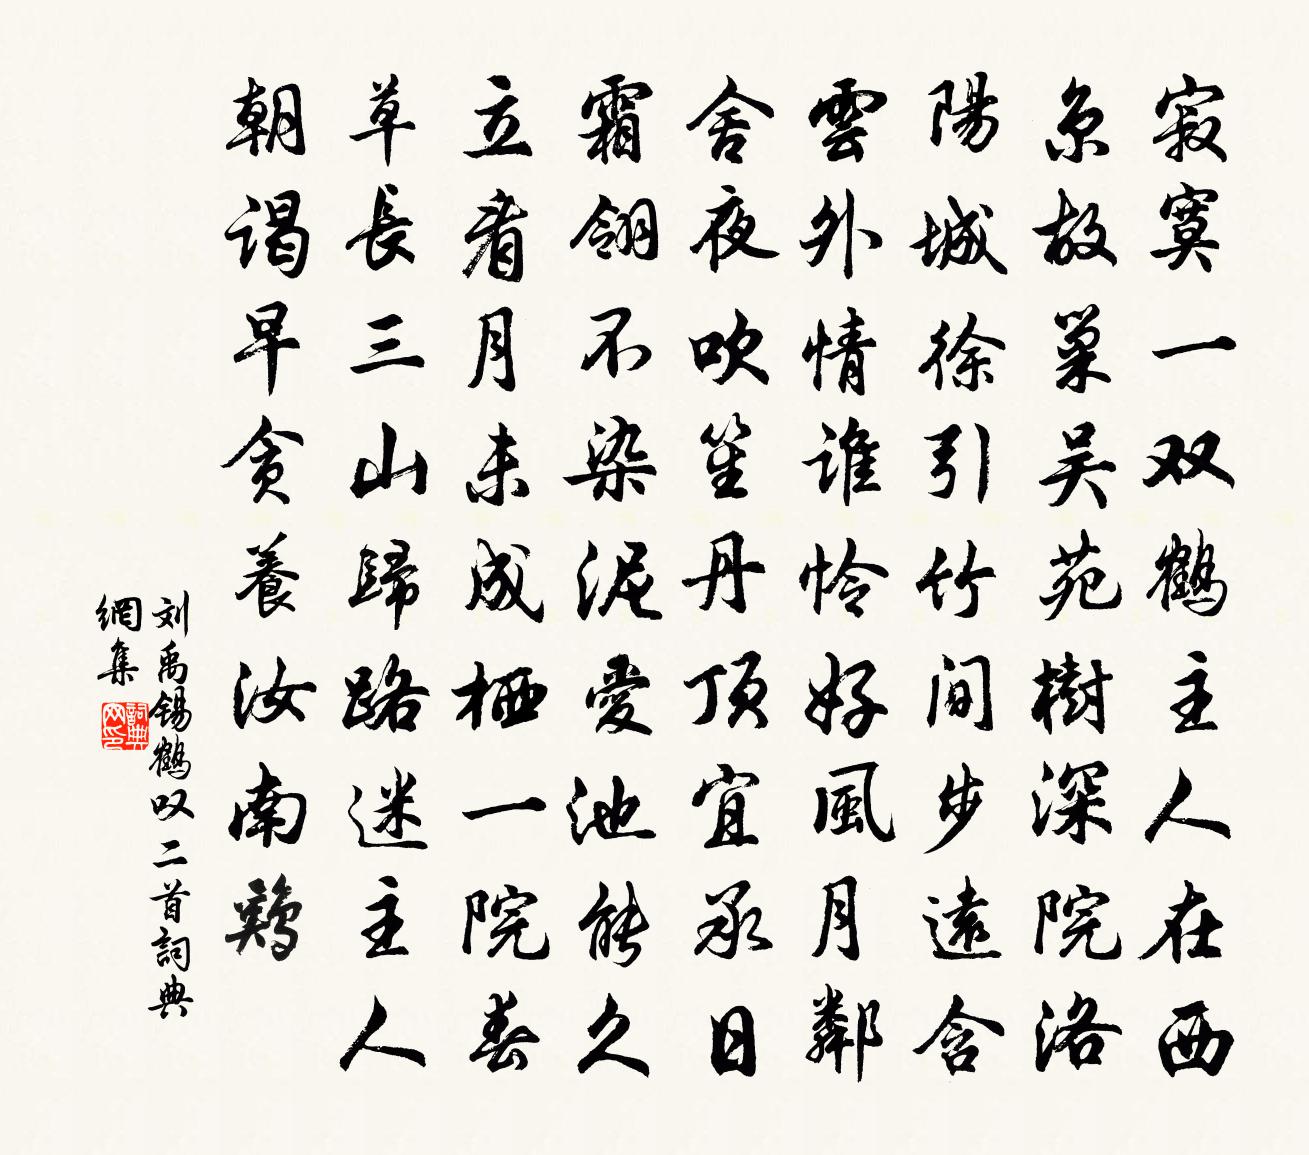 寂寞一双鶴主人在西
京故巢吴苑樹深院洛
陽城徐引竹间步遠含
雲外情谁怜好風月鄰
舍夜吹笙丹顶宜承日
霜翎不染泥愛池能久
立看月未成栖一院春
草長三山歸路迷主人
朝谒早贪養汝南鷄
刘禹锡鶴叹二首詞典
網集
詞典
网印